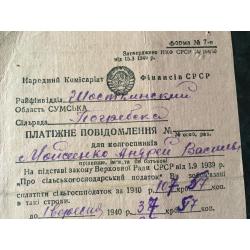 ФОРМА № 7-п
Затверджено НКФ СРСР
від 15.3 1940 р.
Народний Комісаріат Фінансів СРСР
Райфінвідділ Шосткинский
Область СУМСЬКА
Сільрада Погребска
ПЛАТІЖНЕ ПОВІДОМЛЕННЯ №
для колгоспників
Мойсеенко Андрей Васильев
прізвище, ім'я та по батькові
На підставі закону Верховної Ради СРСР від 1.9 1939 р.
"Про сільськогосподарський податок" Ви зобов'язані
сплатити сільгоспподаток за 1940 р. 107 крб. 57 коп.
в такі строки:
1 вересня 1940 р. 37 крб. 57 коп.